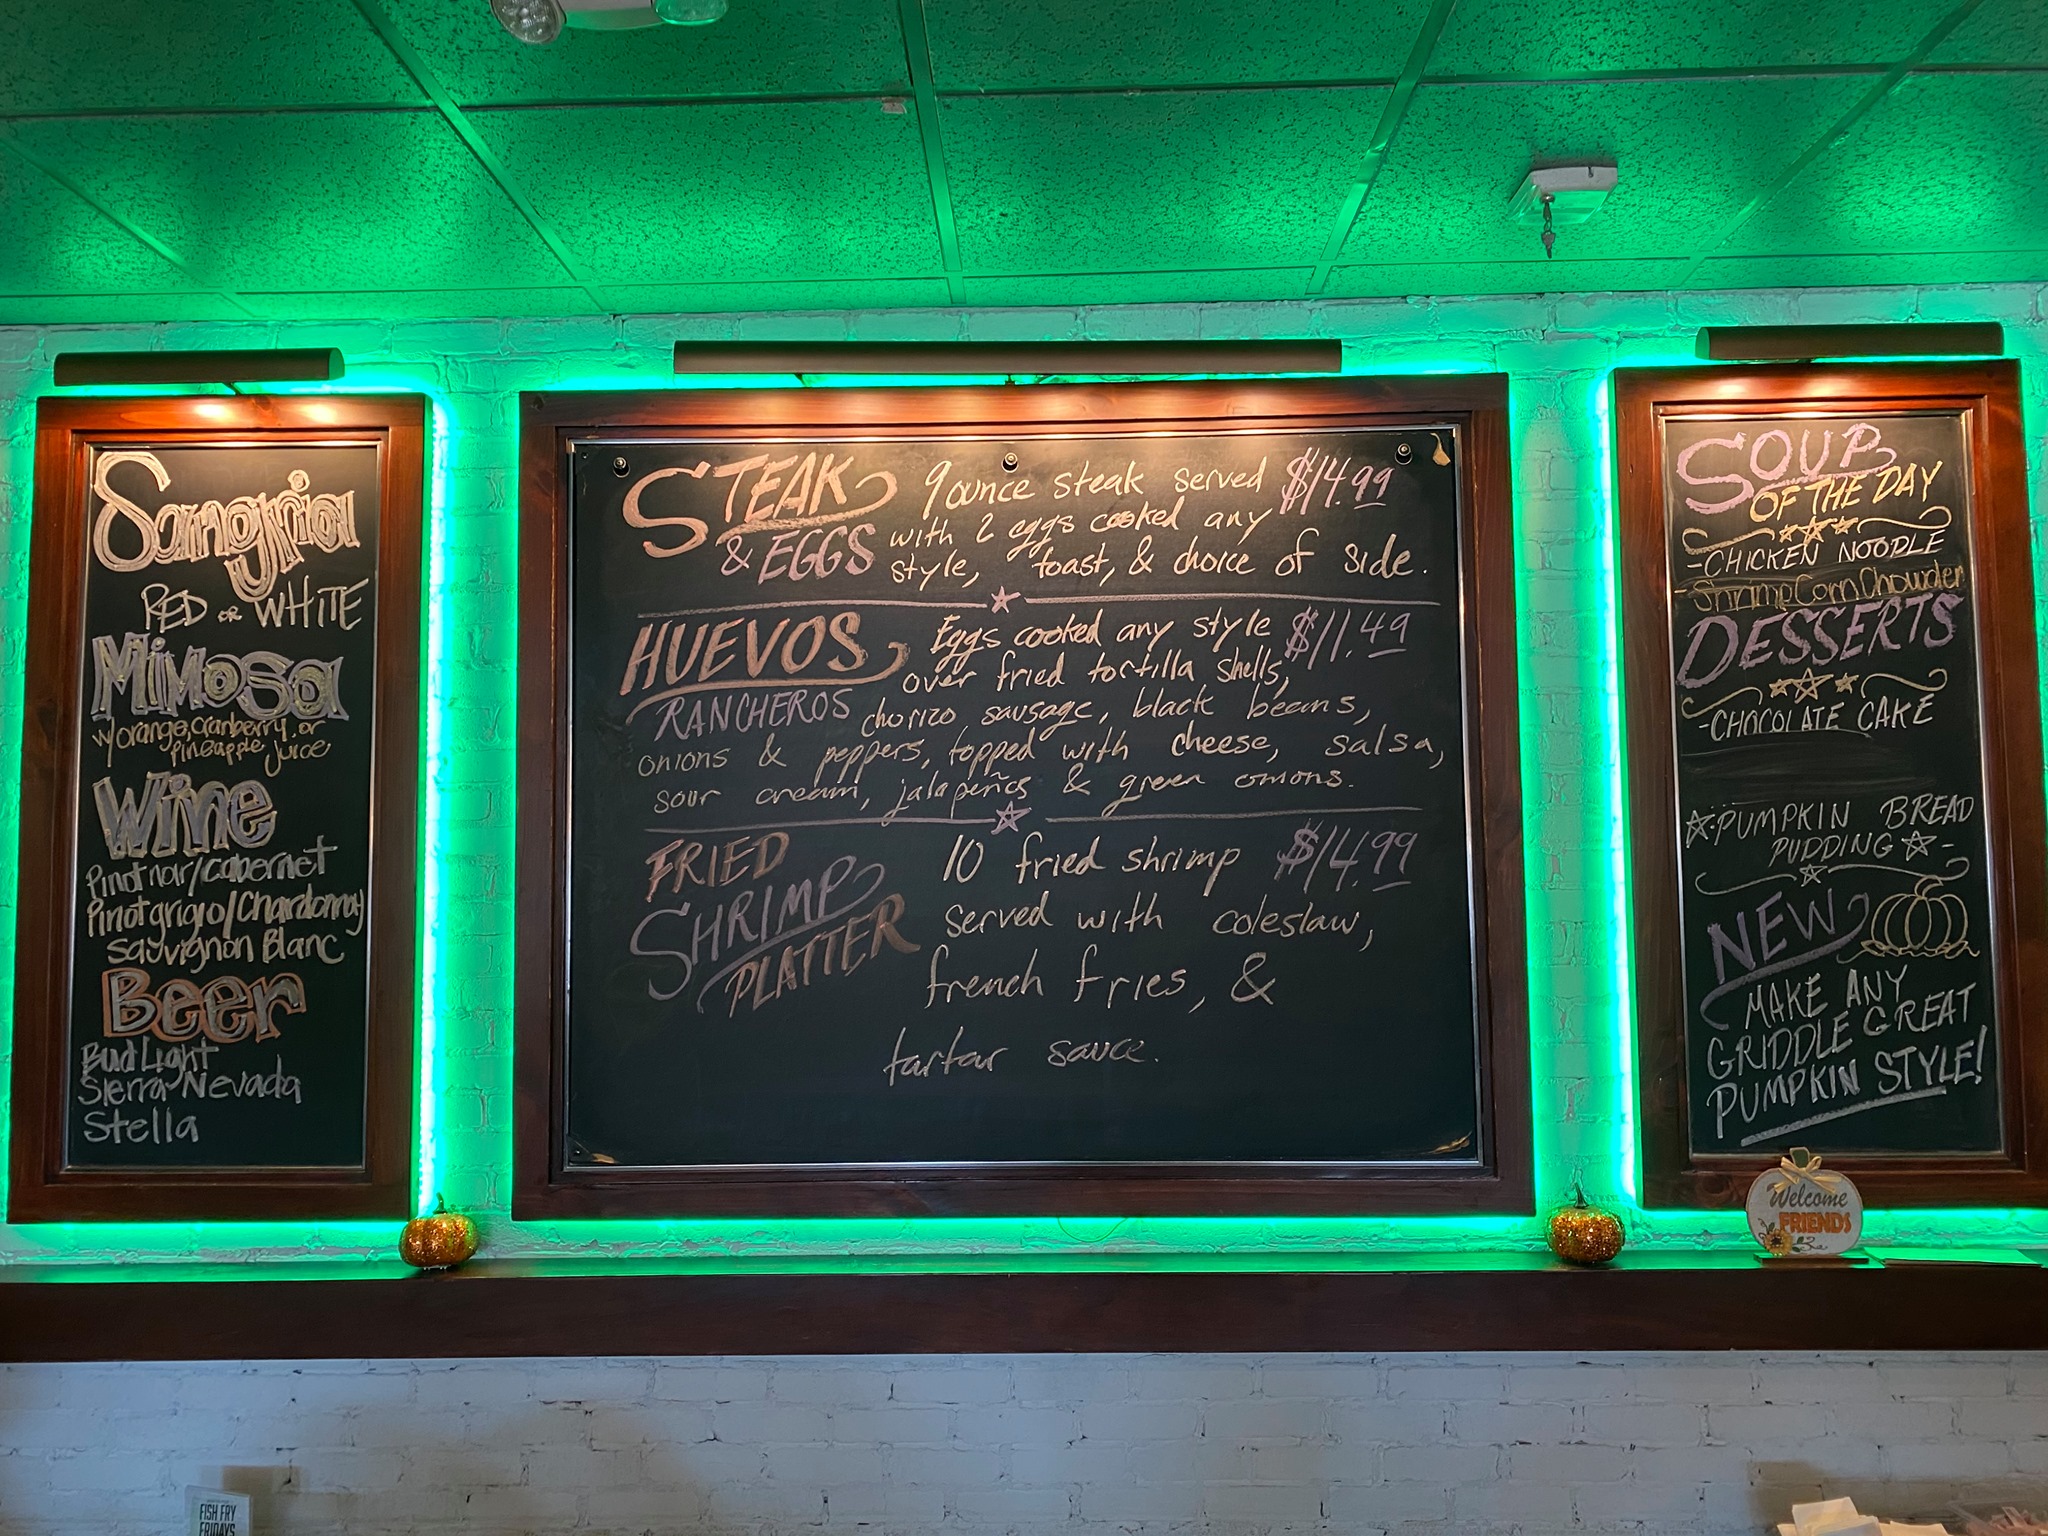 Sangria
RED or WHITE
Mimosa
w/orange, cranberry, or
pineapple juice
Wine
Pinot noir/cabernet
Pinot grigio/Chardonnay
Sauvignon Blanc
Beer
Bud Light
Sierra Nevada
Stella
STEAK
& EGGS
9 ounce steak served $14.99
with 2 eggs cooked any
style, toast, & choice of side.
HUEVOS
RANCHEROS
Eggs cooked any style $11.49
over fried tortilla shells,
chorizo sausage, black beans,
onions & peppers, topped with cheese, salsa,
sour cream, jalapeños & green onions.
FRIED
SHRIMP
PLATTER
10 fried shrimp $14.99
served with coleslaw,
french fries, &
tartar sauce.
SOUP
OF THE DAY
- CHICKEN NOODLE
- Shrimp Corn Chowder
DESSERTS
- CHOCOLATE CAKE
PUMPKIN BREAD
PUDDING -
NEW
MAKE ANY
GRIDDLE GREAT
PUMPKIN STYLE!
Welcome
FRIENDS
FISH FRY
FRIDAYS